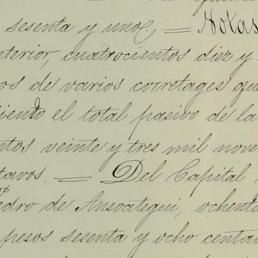 sesenta y uno, — Notas
nterior, cuatrocientos diez y
os de varios corretages qu
iendo el total pasivo de la
ntos veinte y tres mil nove
tavos. — Del Capital
edro de Ansoategui, ochent
pesos sesenta y ocho centa